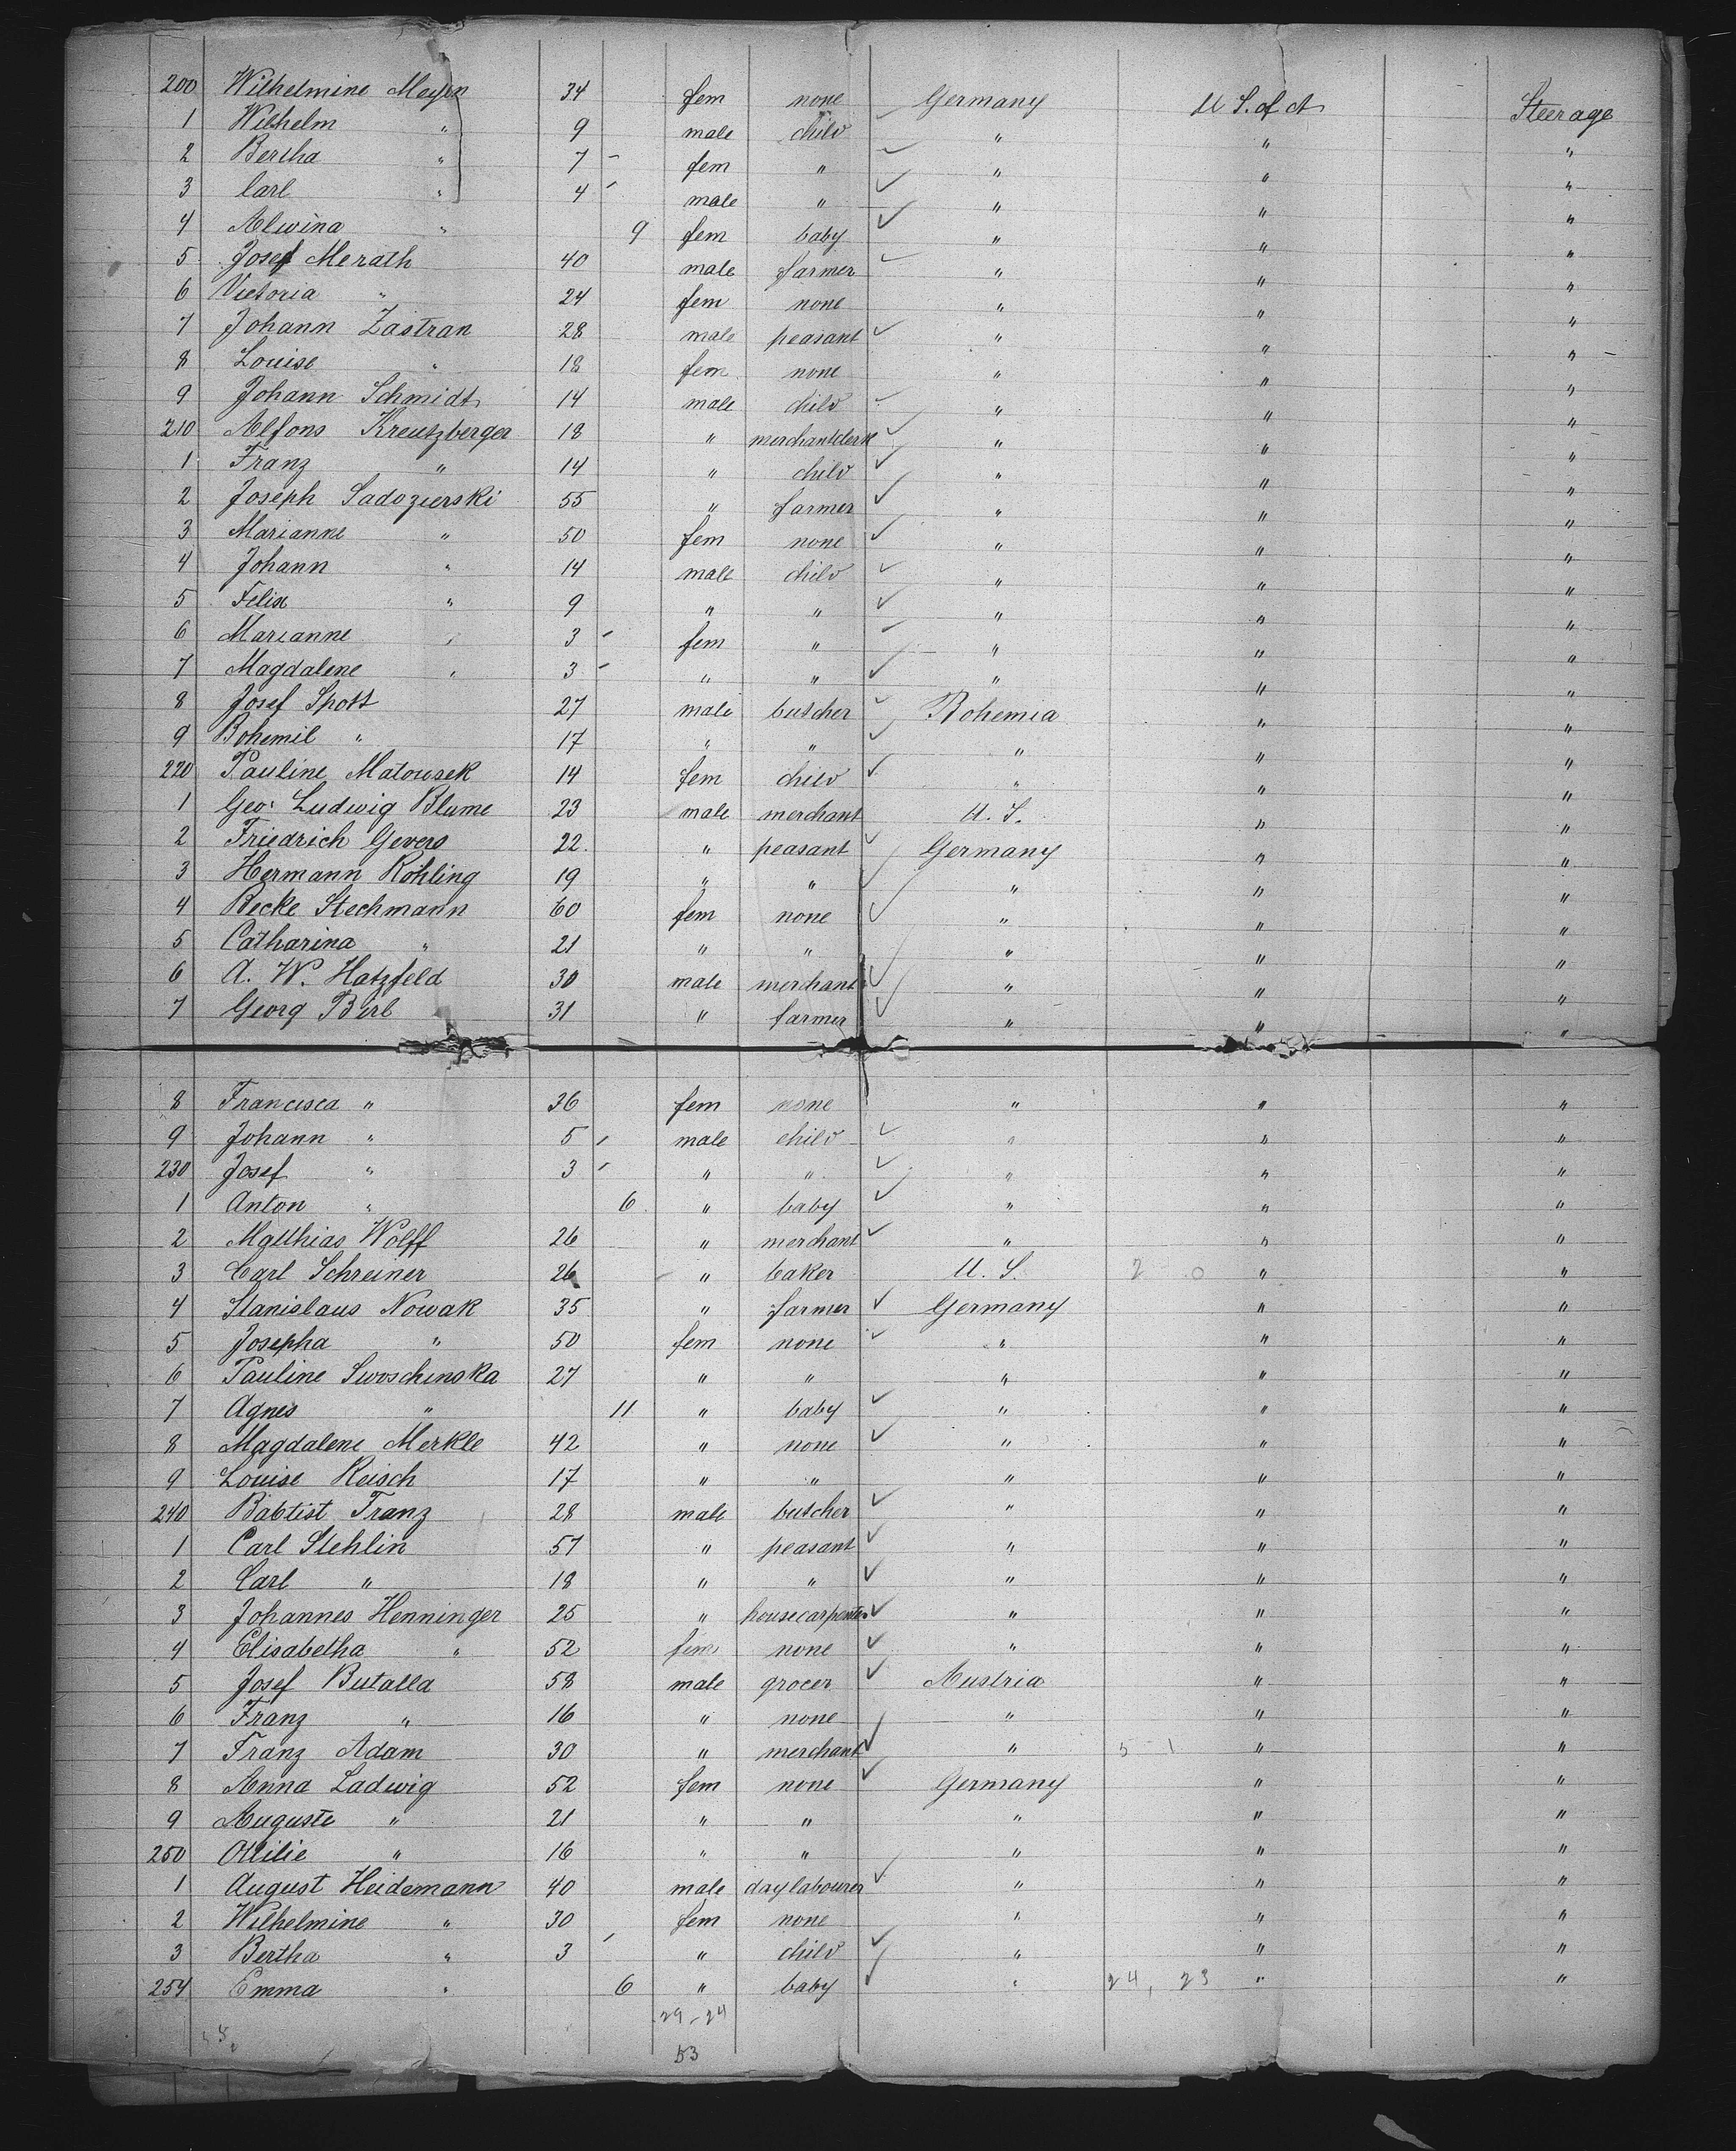 200 Wilhelmine Meyer 34 fem none Germany U S. of A Steerage
1 Wilhelm " 9 male child " " "
2 Bertha " 7 - fem " " " "
3 Carl " 4 - male " " " "
4 Alwina " 9 fem baby " " "
5 Josef Merath 40 male farmer " " "
6 Victoria " 24 fem none " " "
7 Johann Zastran 28 male peasant " " "
8 Louise " 18 fem none " " "
9 Johann Schmidt 14 male child " " "
210 Alfons Kreutzberger 18 " merchantclerk " " "
1 Franz " 14 " child " " "
2 Joseph Sadozierski 55 " farmer " " "
3 Marianne " 50 fem none " " "
4 Johann " 14 male child " " "
5 Felix " 9 " " " " "
6 Marianne " 3 - fem " " " "
7 Magdalene " 3 - " " " " "
8 Josef Spott 27 male butcher Bohemia " "
9 Bohemil " 17 " " " " "
220 Pauline Matousek 14 fem child " " "
1 Geo: Ludwig Blume 23 male merchant U. S. " "
2 Friedrich Gevers 22. " peasant Germany " "
3 Hermann Röhling 19 " " " " "
4 Becke Stechmann 60 fem none " " "
5 Catharina " 21 " " " " "
6 A. W. Hatzfeld 30 male merchant " " "
7 Georg Birl 31 " farmer " " "
8 Francisca " 36 fem none " " "
9 Johann " 5 - male child " " "
230 Josef " 3 - " " " " "
1 Anton " 6 " baby " " "
2 Matthias Wolff 26 " merchant " " "
3 Carl Schreiner 26 " baker U. S. 2 0 " "
4 Stanislaus Nowak 35 " farmer Germany " "
5 Josepha " 50 fem none " " "
6 Pauline Swoschinska 27 " " " " "
7 Agnes " 11 " baby " " "
8 Magdalene Merkle 42 " none " " "
9 Louise Reisch 17 " " " " "
240 Babtist Franz 28 male butcher " " "
1 Carl Stehlin 57 " peasant " " "
2 Carl " 18 " " " " "
3 Johannes Henninger 25 " housecarpenter " " "
4 Elisabetha " 52 fem none " " "
5 Josef Butalla 58 male grocer Austria " "
6 Franz " 16 " none " " "
7 Franz Adam 30 " merchant " 5 1 " "
8 Anna Ladwig 52 fem none Germany " "
9 Auguste " 21 " " " " "
250 Ottilie " 16 " " " " "
1 August Heidemann 40 male daylabourer " " "
2 Wilhelmine " 30 fem none " " "
3 Bertha " 3 - " child " " "
254 Emma " 6 " baby " 24, 23 " "
29-24
53